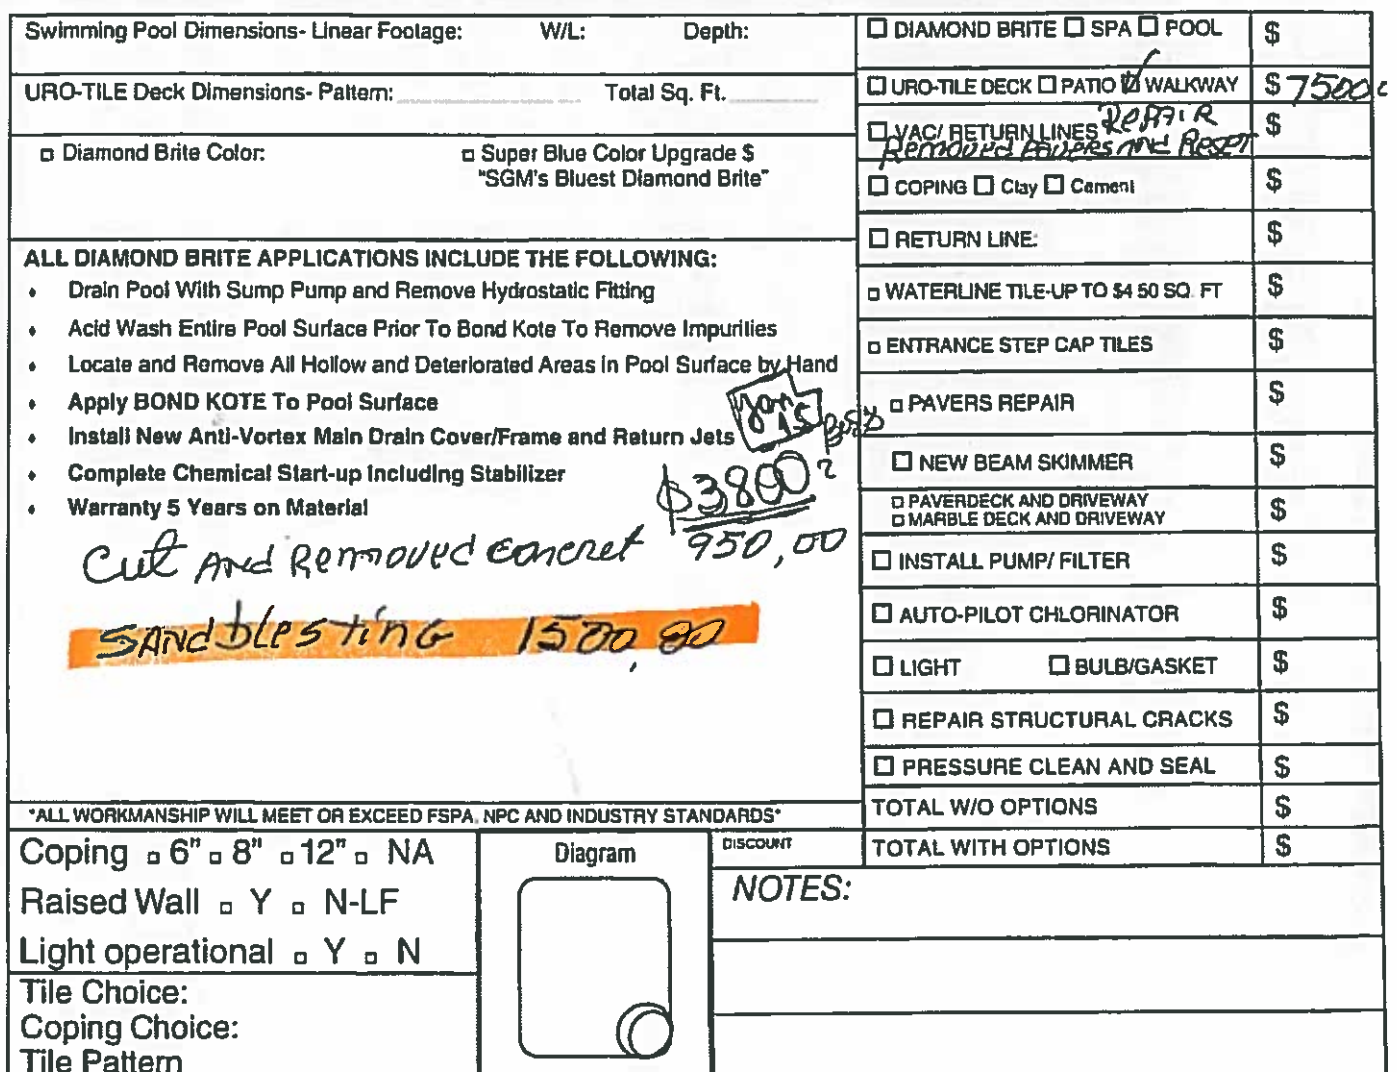 Swimming Pool Dimensions- Linear Footage: W/L: Depth:
URO-TILE Deck Dimensions- Pattern: Total Sq. Ft.
□ Diamond Brite Color: □ Super Blue Color Upgrade $
"SGM's Bluest Diamond Brite"
ALL DIAMOND BRITE APPLICATIONS INCLUDE THE FOLLOWING:
• Drain Pool With Sump Pump and Remove Hydrostatic Fitting
• Acid Wash Entire Pool Surface Prior To Bond Kote To Remove Impurities
• Locate and Remove All Hollow and Deteriorated Areas in Pool Surface by Hand
• Apply BOND KOTE To Pool Surface
• Install New Anti-Vortex Main Drain Cover/Frame and Return Jets
• Complete Chemical Start-up Including Stabilizer
• Warranty 5 Years on Material
$3800
Cut And Removed concret 950,00
SANdblesting 1500,00
*ALL WORKMANSHIP WILL MEET OR EXCEED FSPA, NPC AND INDUSTRY STANDARDS*
□ DIAMOND BRITE □ SPA □ POOL $
□ URO-TILE DECK □ PATIO ☑ WALKWAY $ 7500
□ VAC/ RETURN LINES REPAIR $
Removed Pavers and Reset
□ COPING □ Clay □ Cement $
□ RETURN LINE: $
□ WATERLINE TILE-UP TO $4 50 SQ. FT $
□ ENTRANCE STEP CAP TILES $
□ PAVERS REPAIR $
□ NEW BEAM SKIMMER $
□ PAVERDECK AND DRIVEWAY $
□ MARBLE DECK AND DRIVEWAY
□ INSTALL PUMP/ FILTER $
□ AUTO-PILOT CHLORINATOR $
□ LIGHT □ BULB/GASKET $
□ REPAIR STRUCTURAL CRACKS $
□ PRESSURE CLEAN AND SEAL $
TOTAL W/O OPTIONS $
DISCOUNT TOTAL WITH OPTIONS $
Coping □ 6" □ 8" □ 12" □ NA
Raised Wall □ Y □ N-LF
Light operational □ Y □ N
Tile Choice:
Coping Choice:
Tile Pattern
Diagram
NOTES: